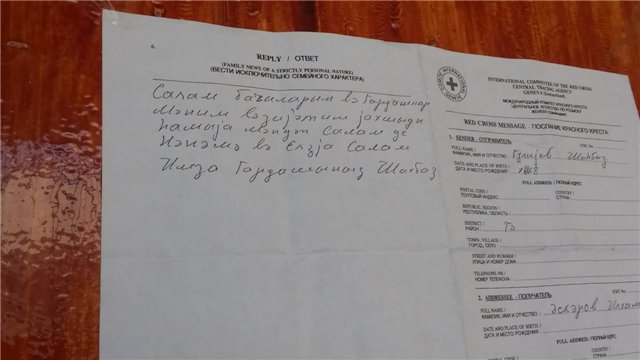 6.
REPLY / ОТВЕТ
(FAMILY NEWS OF A STRICTLY PERSONAL NATURE)
(ВЕСТИ ИСКЛЮЧИТЕЛЬНО СЕМЕЙНОГО ХАРАКТЕРА)
Салам бачыларым вә гардашлар
Мәним вәзијәтим јахшыды
һамыја мәндән Салам де
Нәнәмә вә Елзја Салам
Имза Гардашыныз Шаһбаз
COMITE INTERNATIONAL GENEVE
INTERNATIONAL COMMITTEE OF THE RED CROSS
CENTRAL TRACING AGENCY
GENEVA (Switzerland)
МЕЖДУНАРОДНЫЙ КОМИТЕТ КРАСНОГО КРЕСТА
ЦЕНТРАЛЬНОЕ АГЕНТСТВО ПО РОЗЫСКУ
ЖЕНЕВА (Швейцария)
RED CROSS MESSAGE - ПОСЛАНИЕ КРАСНОГО КРЕСТА
1. SENDER - ОТПРАВИТЕЛЬ
FULL NAME /
ФАМИЛИЯ, ИМЯ И ОТЧЕСТВО Шаһбаз
DATE AND PLACE OF BIRTH /
ДАТА И МЕСТО РОЖДЕНИЯ 1968
FULL ADDRESS / ПОЛНЫЙ АДРЕС
POSTAL CODE / COUNTRY /
ПОЧТОВЫЙ ИНДЕКС СТРАНА
REPUBLIC, REGION /
РЕСПУБЛИКА, ОБЛАСТЬ
DISTRICT /
РАЙОН
TOWN, VILLAGE /
ГОРОД, СЕЛО
STREET AND NUMBER /
УЛИЦА И НОМЕР ДОМА
TELEPHONE NR /
НОМЕР ТЕЛЕФОНА
2. ADDRESSEE - ПОЛУЧАТЕЛЬ
FULL NAME /
ФАМИЛИЯ, ИМЯ И ОТЧЕСТВО Әскәров Илһам
DATE AND PLACE OF BIRTH /
ДАТА И МЕСТО РОЖДЕНИЯ
FULL ADDRESS / ПОЛНЫЙ АДРЕС
COUNTRY /
СТРАНА